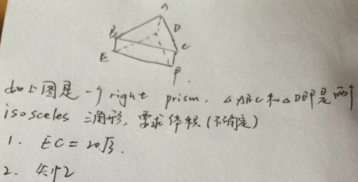 A
B
D
E
C
F
如上图是一个right prism. △ABC和△DEF是两个
isosceles 三角形, 要求体积(不确定)
1. EC = 20√3.
2.